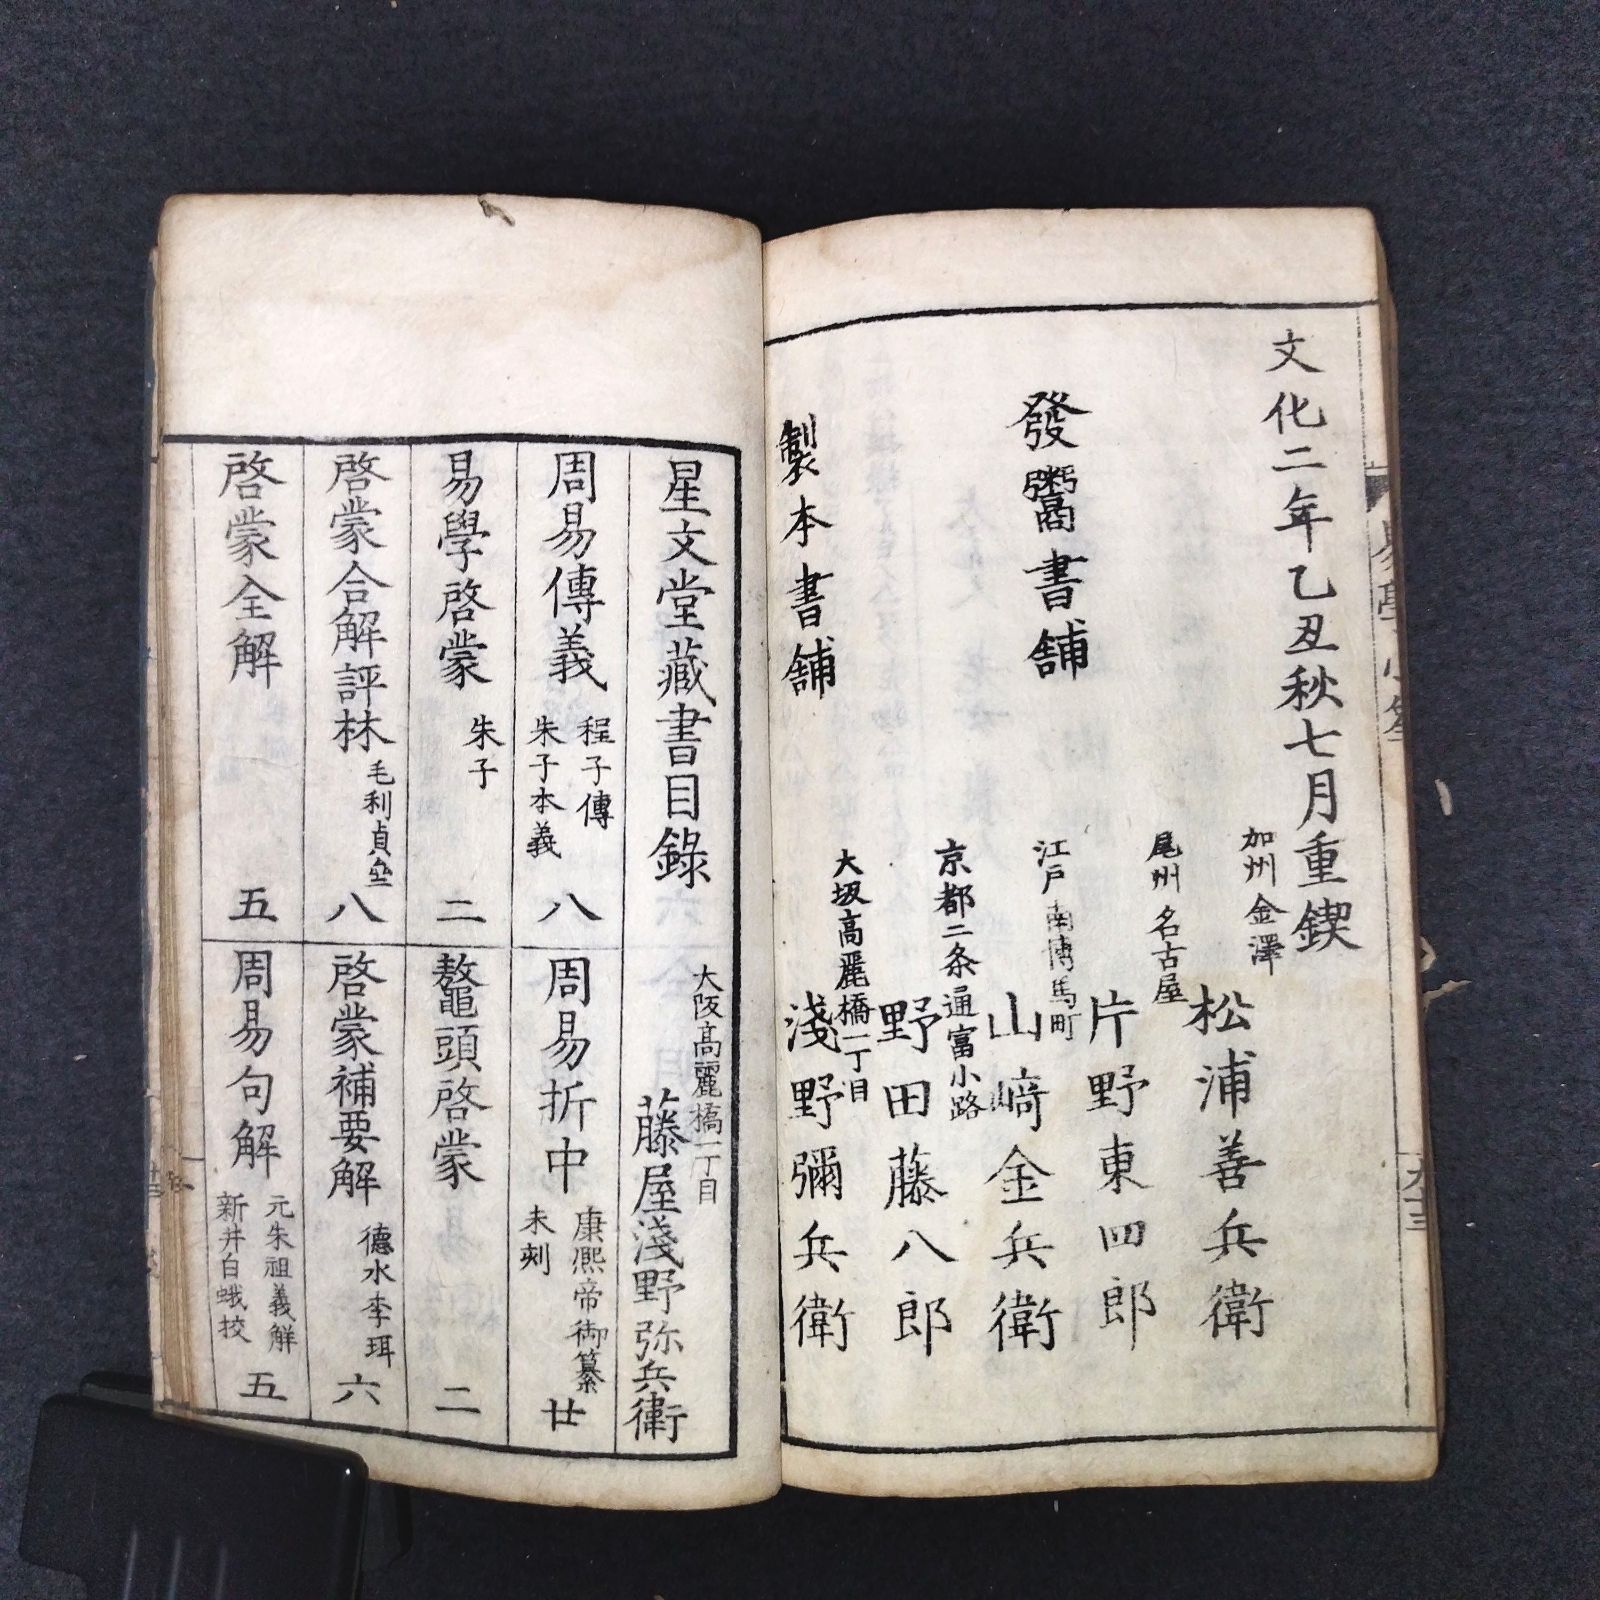 文化二年乙丑秋七月重鍥
發鬻書舗
加州金澤
松浦善兵衛
尾州名古屋
片野東四郎
江戸南傳馬町
山﨑金兵衛
京都二条通富小路
野田藤八郎
製本書舗
大坂高麗橋一丁目
淺野彌兵衛
星文堂藏書目錄
大阪高麗橋一丁目
藤屋淺野弥兵衛
周易傳義 程子傳
朱子本義 八
周易折中 康熙帝御纂
未刻 廿
易學啓蒙 朱子 二
鼇頭啓蒙 二
啓蒙合解評林 毛利貞 八
啓蒙補要解 德水李珥 六
啓蒙全解 五
周易句解 元朱祖義解
新井白蛾挍 五